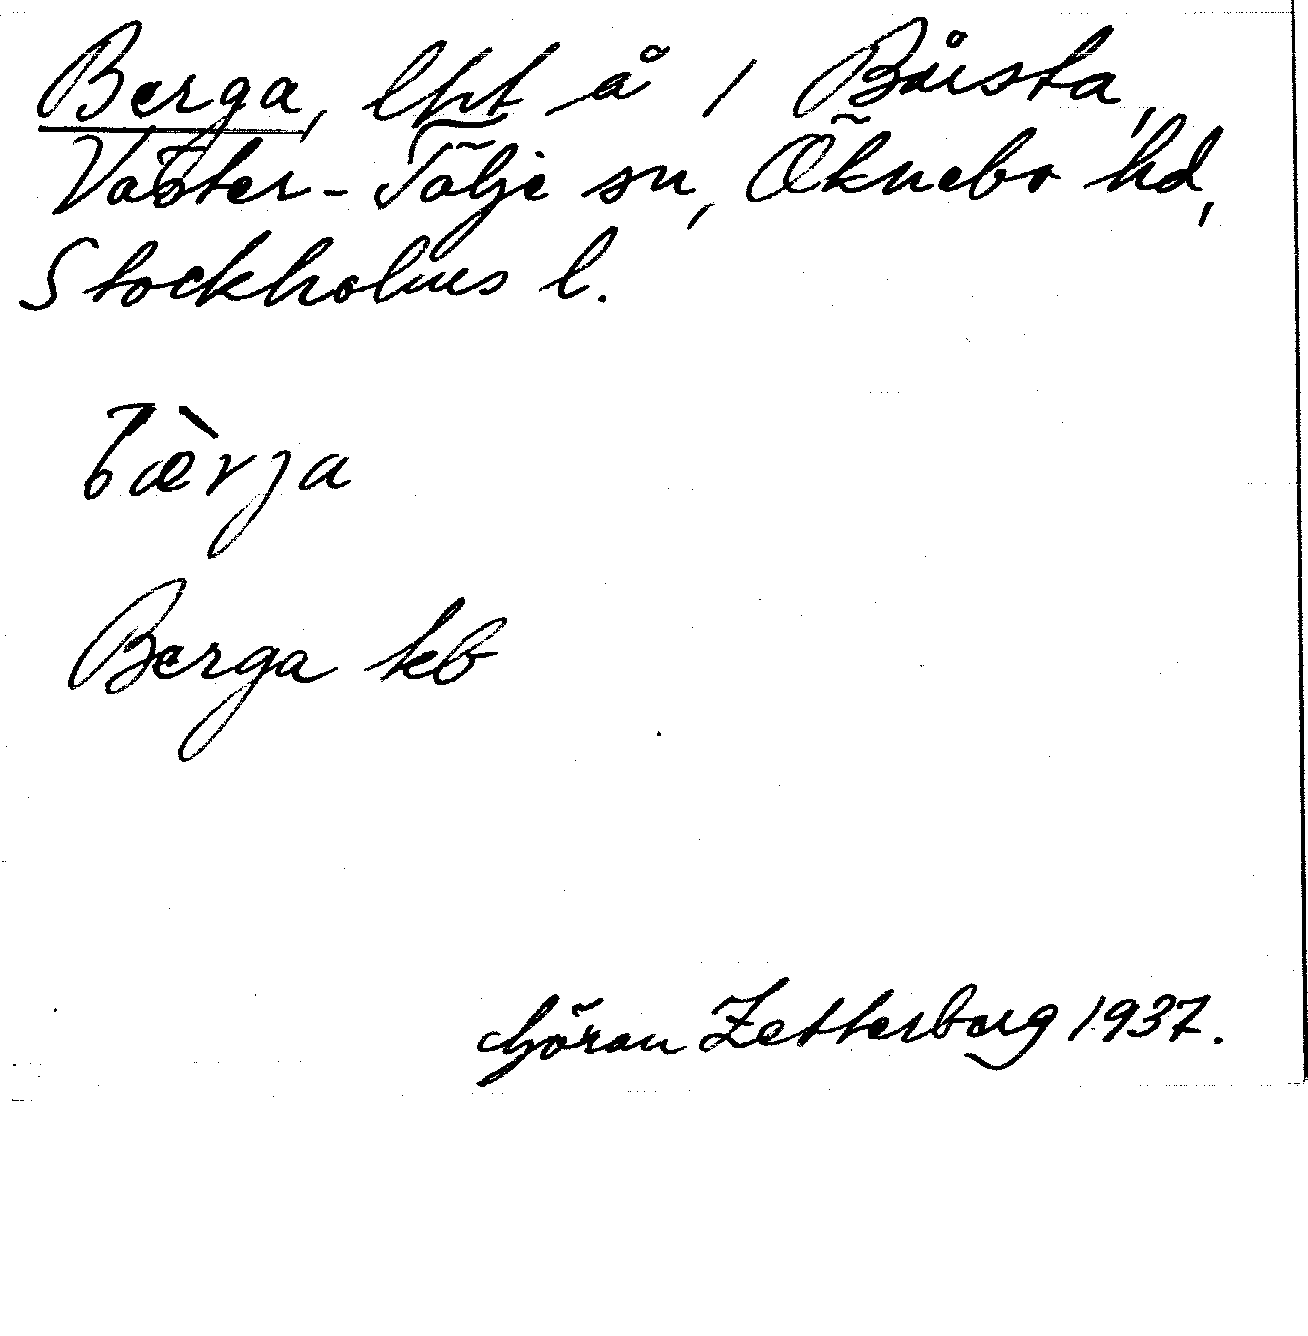 Berga, lht å 1 Bårsta,
Väster-Tälje sn, Öknebo hd,
Stockholms l.
bæ̀rja
Berga kb
Göran Zetterberg 1937.